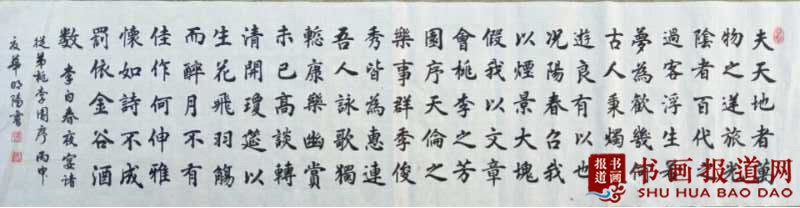 夫天地者萬
物之逆旅光
陰者百代之
過客浮生若
夢為歡幾何
古人秉燭夜
遊良有以也
况陽春召我
以煙景大塊
假我以文章
會桃李之芳
園序天倫之
樂事群季俊
秀皆為惠連
吾人詠歌獨
慙康樂幽賞
未已高談轉
清開瓊筵以
坐花飛羽觴
而醉月不有
佳作何伸雅
懷如詩不成
罰依金谷酒
數 李白春夜宴诸
從弟桃李園序 丙申
書画
报道
书画报道网
SHU HUA BAO DAO